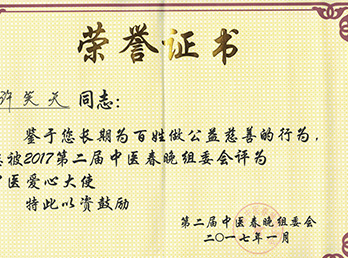 荣誉证书
许笑天 同志:
鉴于您长期为百姓做公益慈善的行为,
被2017第二届中医春晚组委会评为
医爱心大使
特此以资鼓励
第二届中医春晚组委会
二〇一七年一月